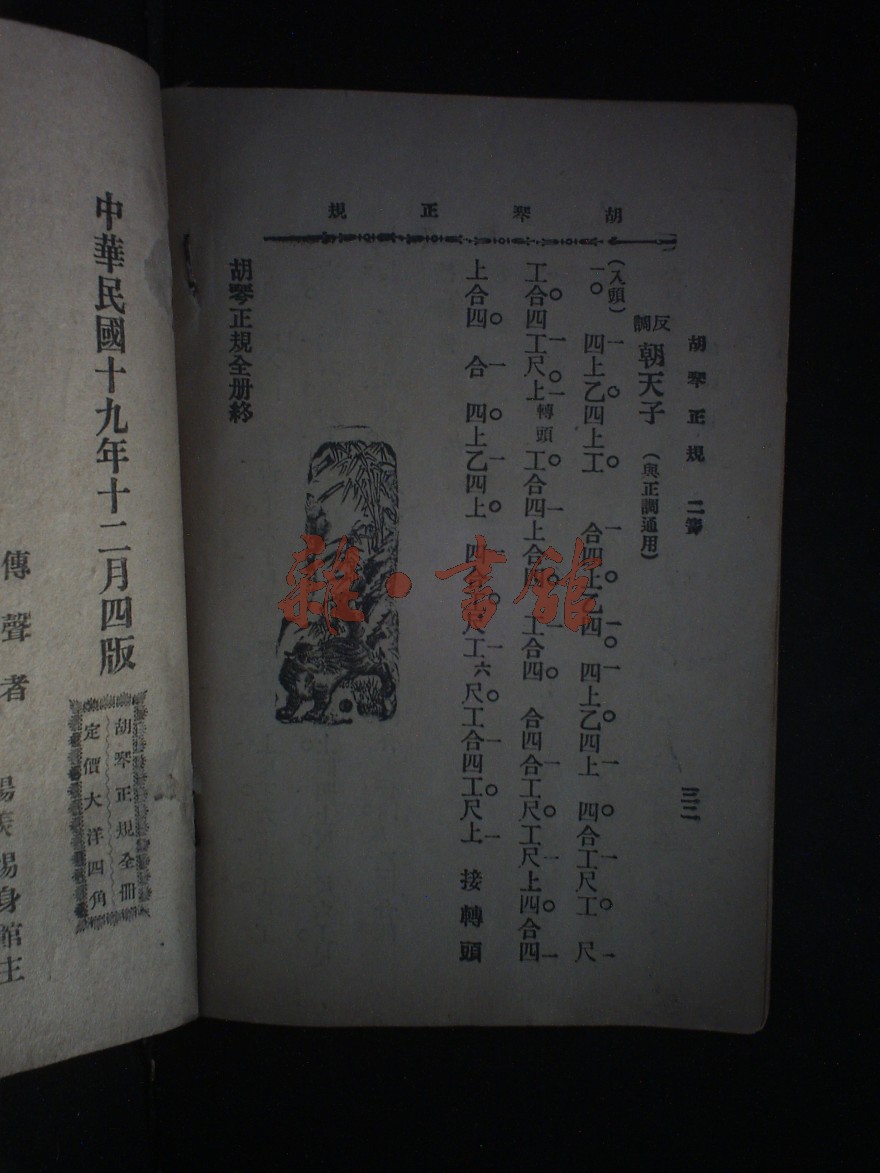 胡琴正規
胡琴正規 二簧
三二
反調 朝天子 (與正調通用)
(入頭) 四上乙四上工 合四上乙四 四上乙四上 四合工尺工 尺
工合四工尺上 轉頭 工合四上合四 工合四 合四合工尺工尺上四合四
上合四 合 四上乙四上 四合 尺工六尺工合四工尺上 接轉頭
胡琴正規全册終
中華民國十九年十二月四版
胡琴正規全冊
定價大洋四角
傳聲者
身館主
雜·書館